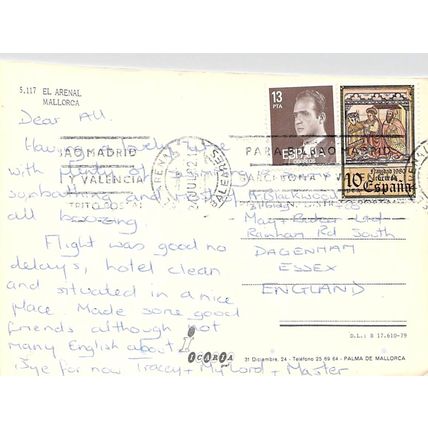 5.117 EL ARENAL
MALLORCA
Dear All.
Having a lovely time
with plenty of
sunbathing and
all boozing.
Flight was good no
delays, hotel clean
and situated in a nice
place. Made some good
friends although not
many English about
Bye for now Tracey + My Lord + Master
13
PTA
ESPAÑA
Navidad 1980
10
España
BILBAO MADRID
VALENCIA
May + Baker Ltd
Rainham Rd South
DAGENHAM
ESSEX
ENGLAND
D.L.: B 17.610-79
ICARIA
31 Diciembre, 24 - Teléfono 25 69 64 - PALMA DE MALLORCA